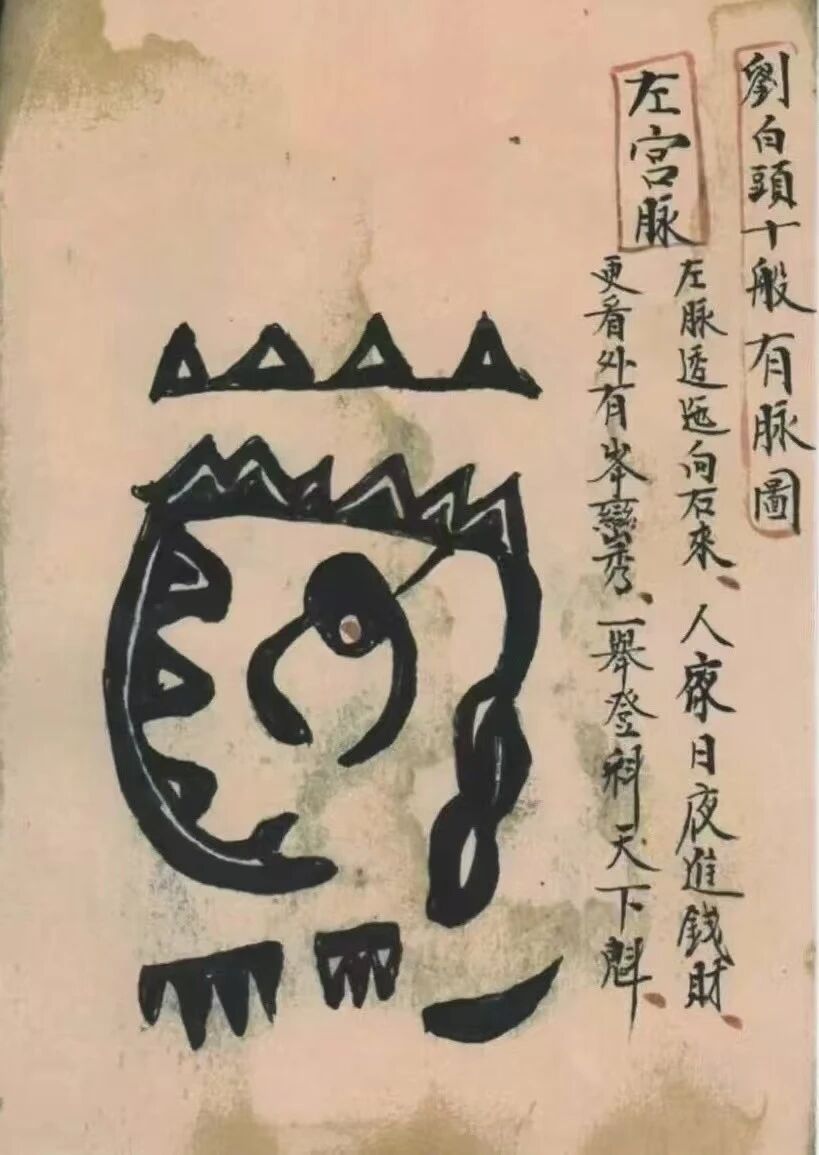 劉白頭十般有脉圖
左宮脉
左脉透迤向右來、人家日夜進錢財、
更看外有峯巒秀、一舉登科天下魁、